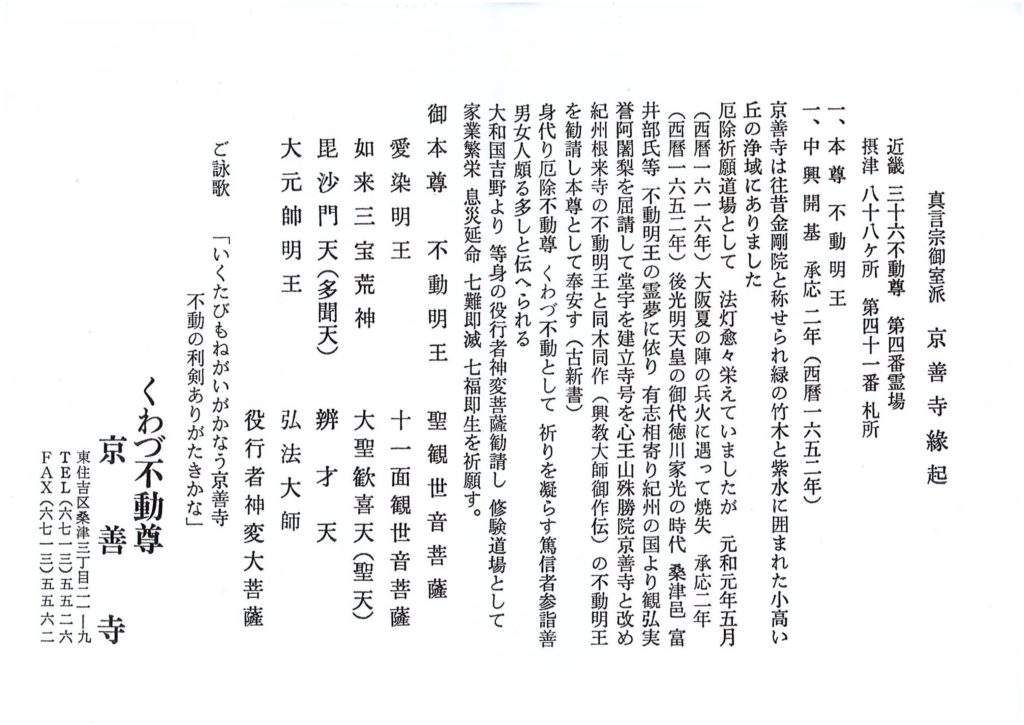 真言宗御室派　京善寺縁起
近畿 三十六不動尊　第四番霊場
摂津 八十八ヶ所　第四十一番 札所
一、本尊 不動明王
一、中興開基　承応 二年（西暦一六五二年）
京善寺は往昔金剛院と称せられ緑の竹木と紫水に囲まれた小高い
丘の浄域にありました
厄除祈願道場として　法灯愈々栄えていましたが　元和元年五月
（西暦一六一六年）大阪夏の陣の兵火に遇って焼失　承応二年
（西暦一六五二年）後光明天皇の御代徳川家光の時代　桑津邑　富
井部氏等　不動明王の霊夢に依り　有志相寄り紀州の国より観弘実
誉阿闍梨を屈請して堂宇を建立寺号を心王山殊勝院京善寺と改め
紀州根来寺の不動明王と同木同作（興教大師御作伝）の不動明王
を勧請し本尊として奉安す（古新書）
身代り厄除不動尊　くわづ不動として　祈りを凝らす篤信者参詣善
男女人頗る多しと伝へられる
大和国吉野より　等身の役行者神変菩薩勧請し　修験道場として
家業繁栄　息災延命　七難即滅　七福即生を祈願す。
御本尊　不動明王　聖観世音菩薩
愛染明王　十一面観世音菩薩
如来三宝荒神　大聖歓喜天（聖天）
毘沙門天（多聞天）　辨才天
大元帥明王　弘法大師
役行者神変大菩薩
ご詠歌　「いくたびもねがいがかなう京善寺
不動の利剣ありがたきかな」
くわづ不動尊
京善寺
東住吉区桑津三丁目二一ー九
ＴＥＬ（六七一三）五五二六
ＦＡＸ（六七一三）五五六二